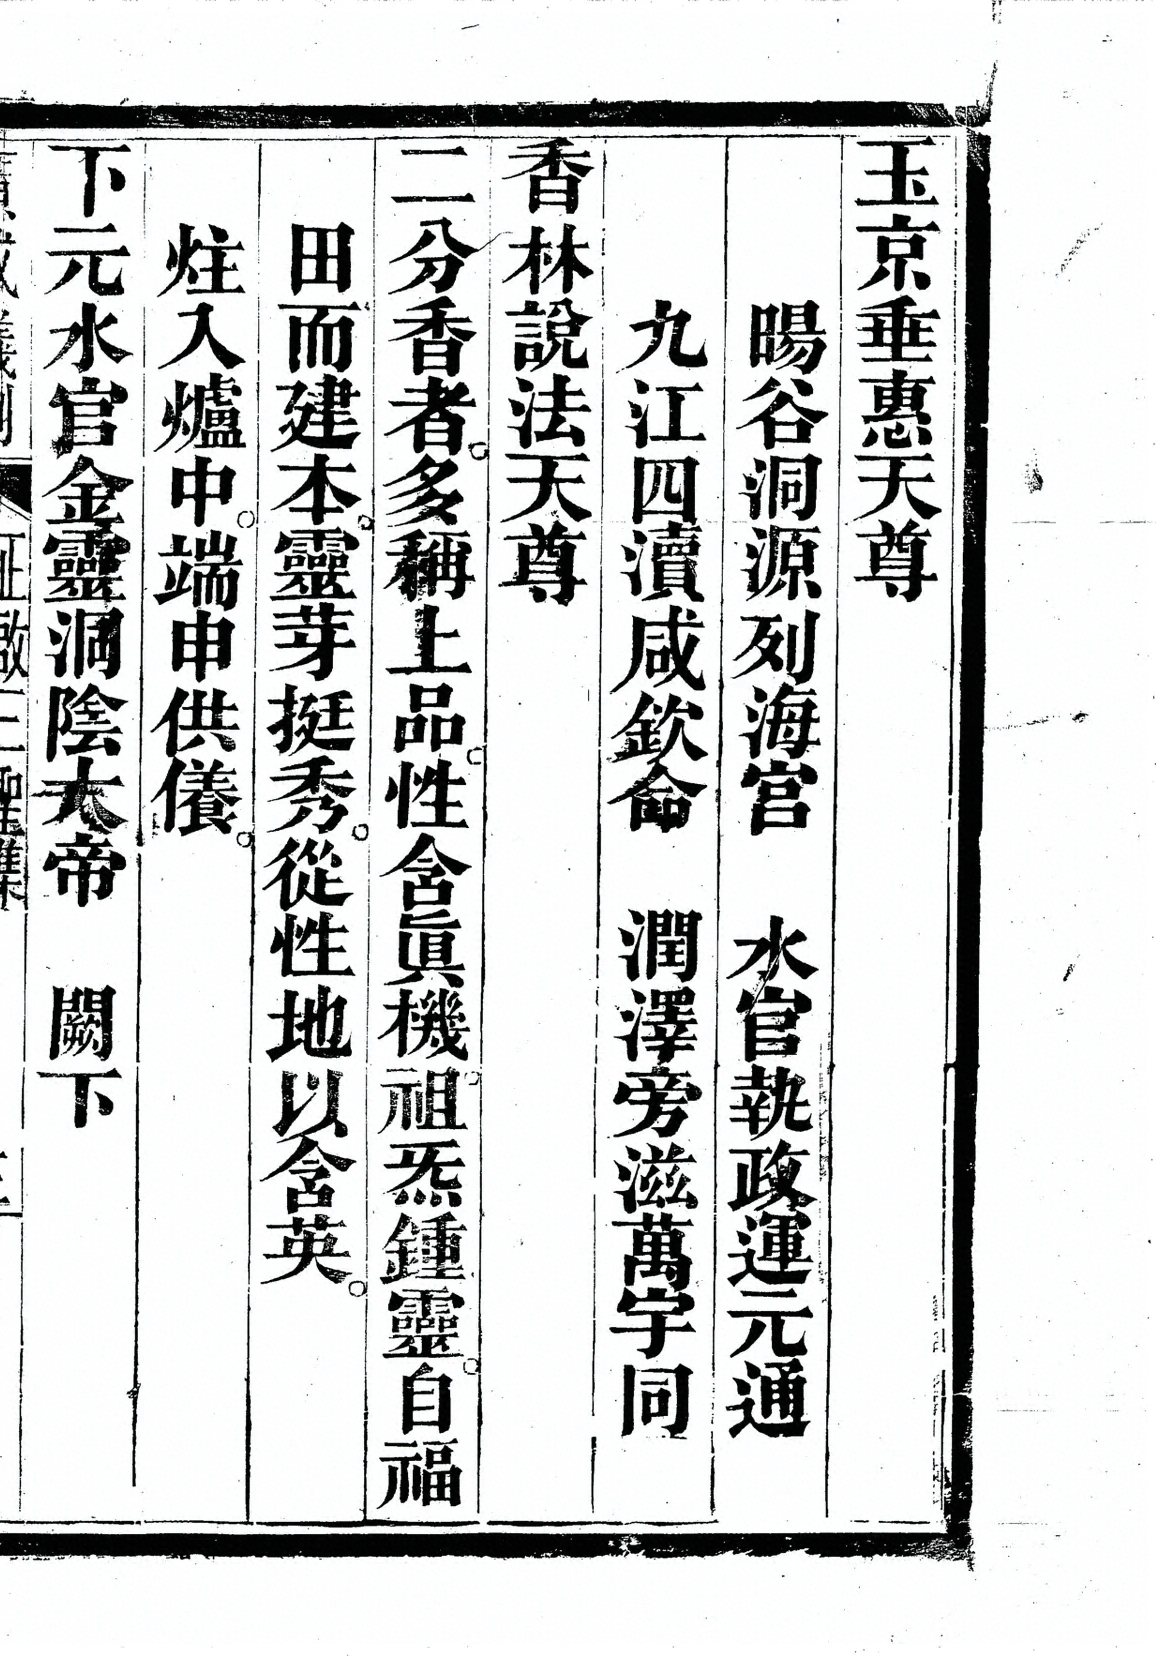 玉京垂惠天尊
暘谷洞源列海宮　水官執政運元通
九江四瀆咸欽命　潤澤旁滋萬宇同
香林說法天尊
二分香者。多稱上品。性含眞機。祖炁鍾靈。自福
田而建本。靈芽挺秀。從性地以含英。
炷入爐中。端申供儀。
下元水官金靈洞陰大帝　闕下